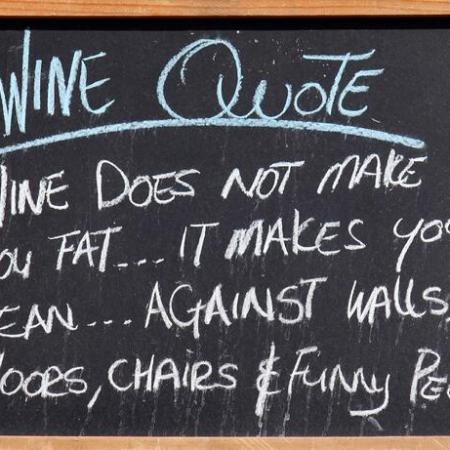 WINE QUOTE
WINE DOES NOT MAKE
YOU FAT... IT MAKES YOU
EAN... AGAINST WALLS,
DOORS, CHAIRS & FUNNY PE